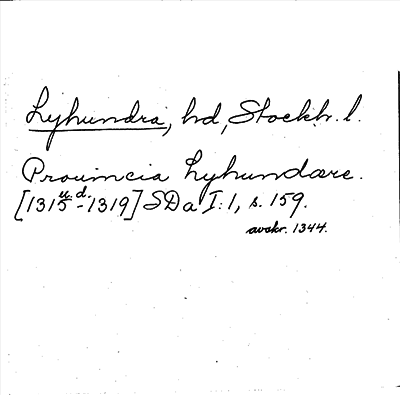 Lyhundra, hd, Stockh. l.
Prouincia Lyhundære.
[1315 u.d. -1319] SDa I:1, s. 159.
avskr. 1344.